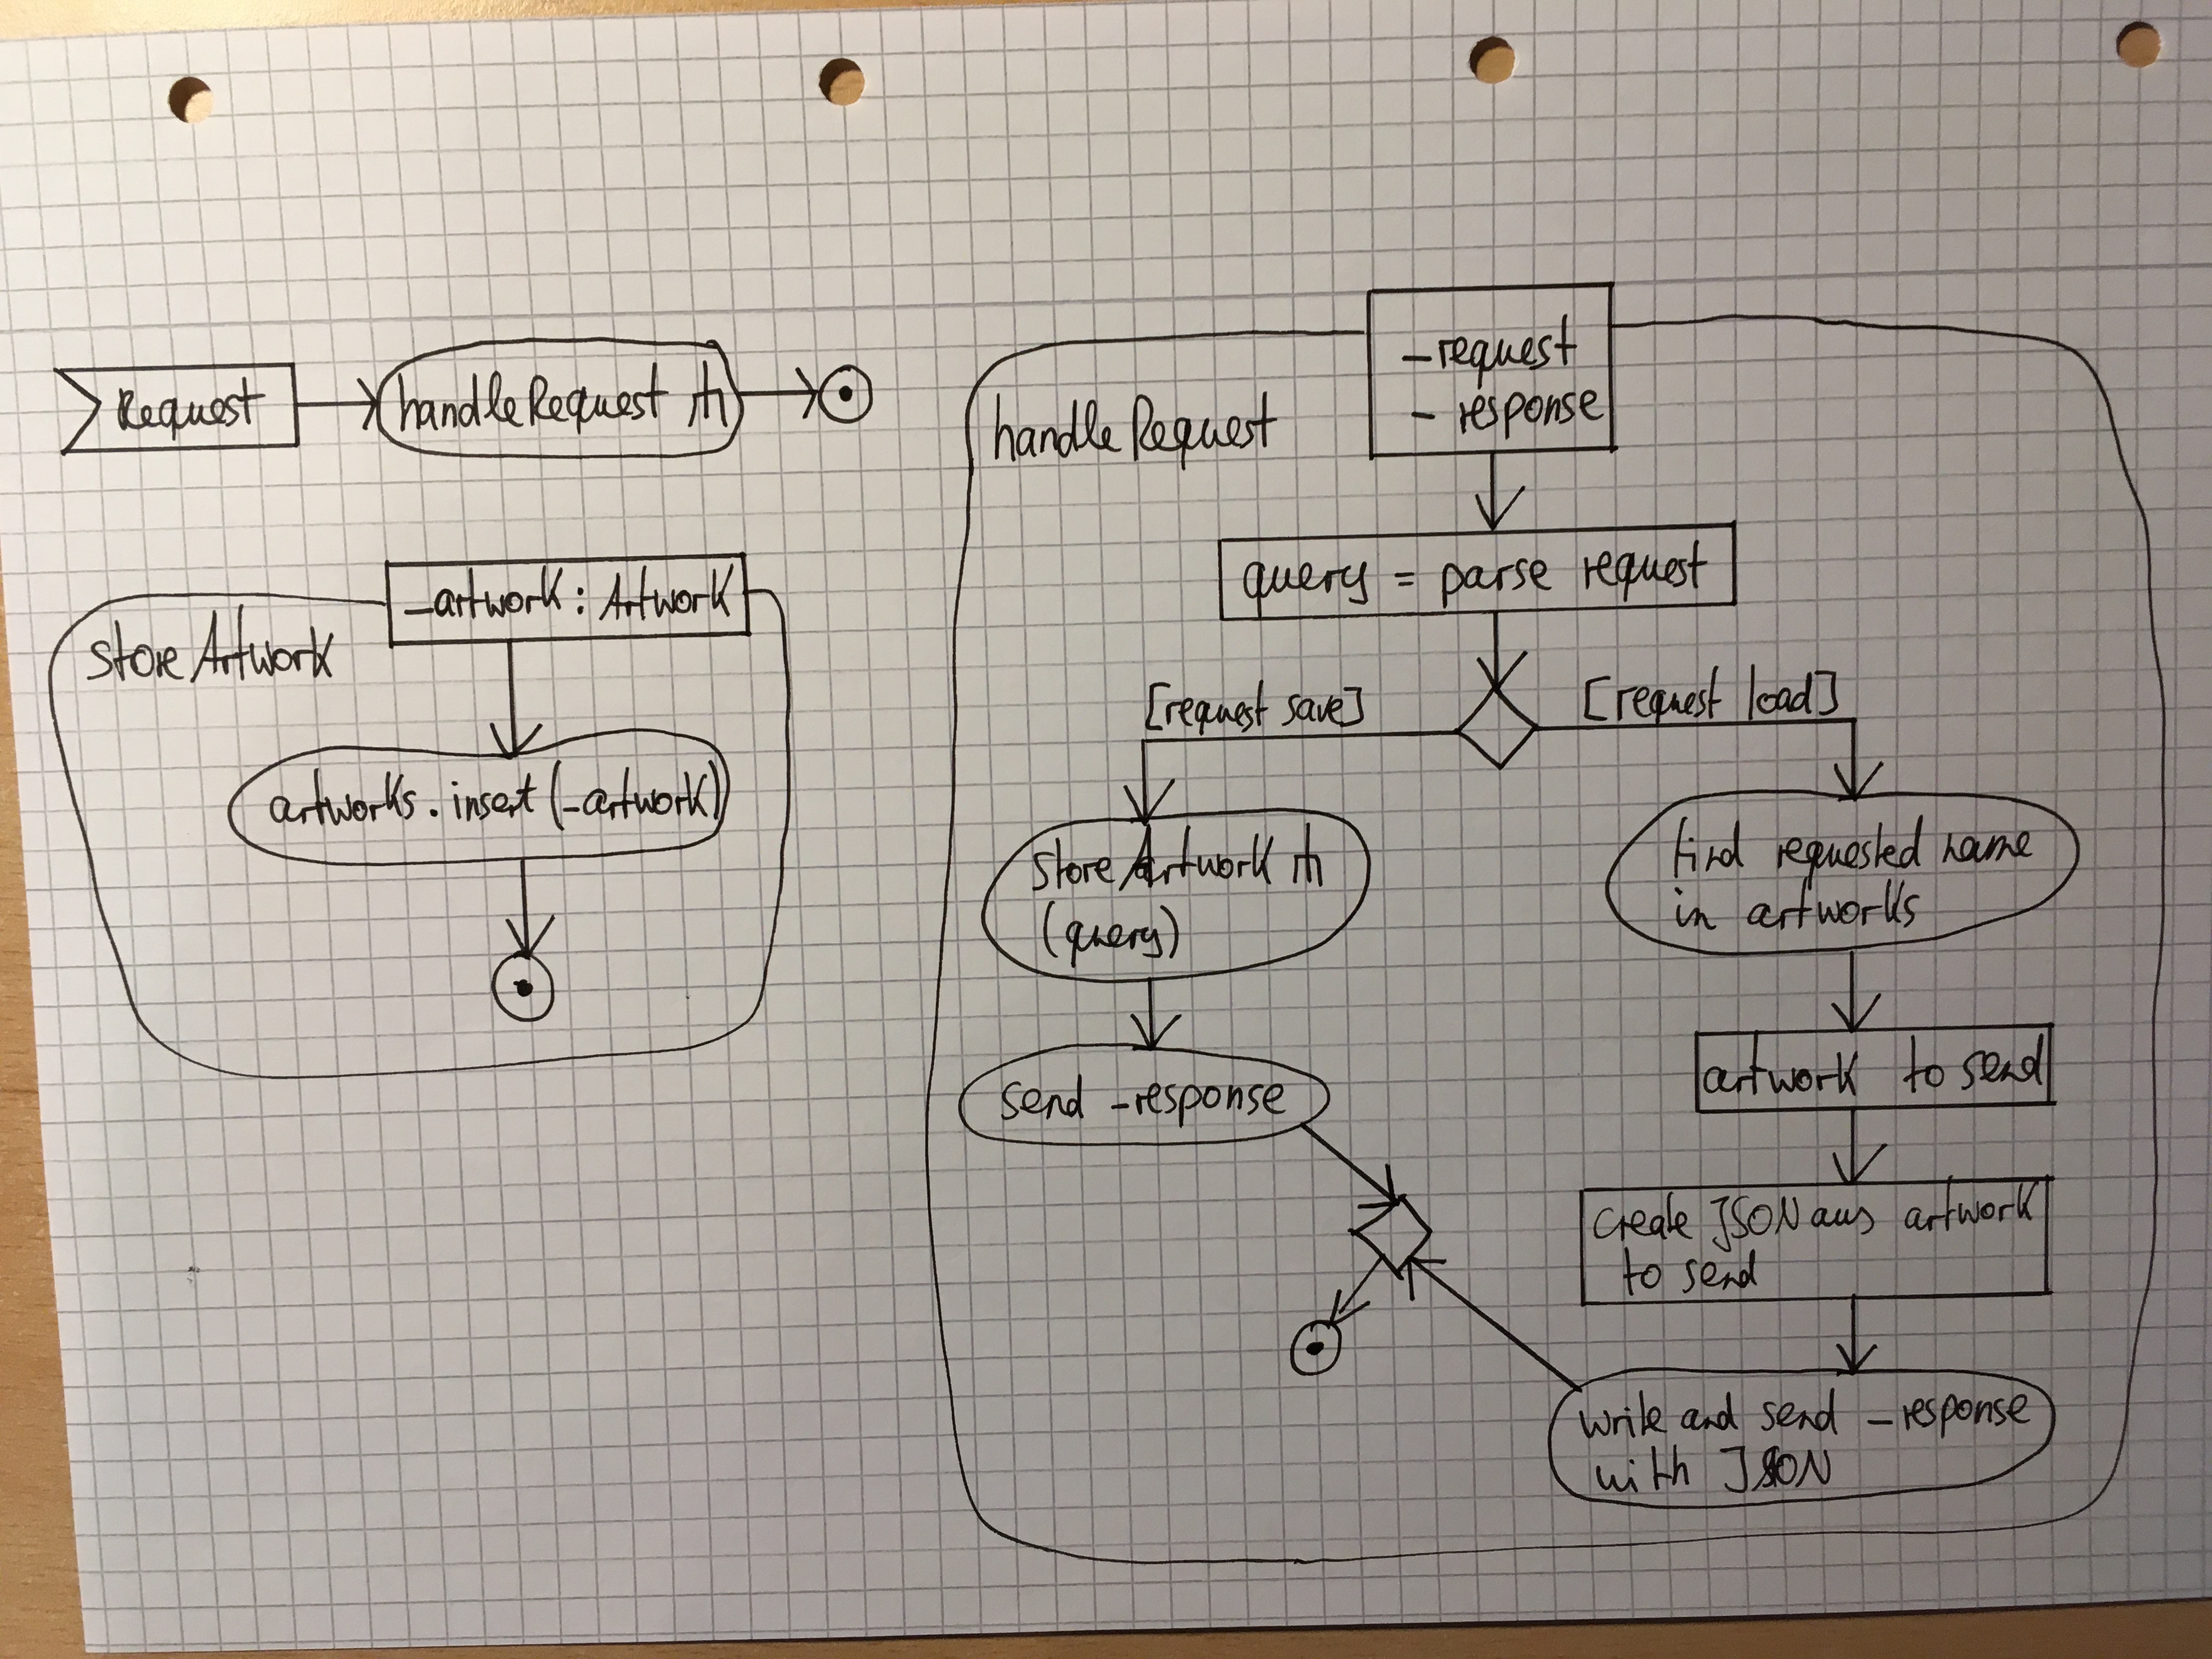 Request
handleRequest
StoreArtwork
_artwork: Artwork
artworks.insert(_artwork)
handleRequest
_request
_response
query = parse request
[request save]
[request load]
StoreArtwork
(query)
send _response
find requested name
in artworks
artwork to send
create JSON aus artwork
to send
write and send _response
with JSON